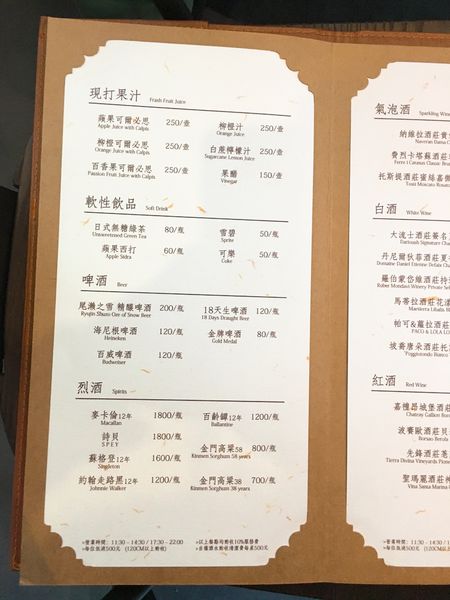 現打果汁 Fresh Fruit Juice
蘋果可爾必思 250/壺
Apple Juice with Calpis
柳橙可爾必思 250/壺
Orange Juice with Calpis
百香果可爾必思 250/壺
Passion Fruit Juice with Calpis
柳橙汁 250/壺
Orange Juice
白蔗檸檬汁 250/壺
Sugarcane Lemon Juice
果醋 150/壺
Vinegar
軟性飲品 Soft Drink
日式無糖綠茶 80/瓶
Unsweetened Green Tea
蘋果西打 60/瓶
Apple Sidra
雪碧 50/瓶
Sprite
可樂 50/瓶
Coke
啤酒 Beer
尾瀨之雪 精釀啤酒 200/瓶
海尼根啤酒 120/瓶
Heineken
百威啤酒 120/瓶
Budweiser
18天生啤酒 120/瓶
18 Days Draught Beer
金牌啤酒 80/瓶
Gold Medal
烈酒 Spirits
麥卡倫12年 1800/瓶
Macallan
詩貝 1800/瓶
SPEY
蘇格登12年 1600/瓶
Singleton
約翰走路黑12年 1200/瓶
Johnnie Walker
百齡罈12年 1200/瓶
Ballantine
金門高粱58 800/瓶
Kinmen Sorghum 58 years
金門高粱38 700/瓶
Kinmen Sorghum 38 years
»營業時間：11:30 - 14:30 / 17:30 - 22:00
»每位低消500元 (120CM以上酌收)
»以上餐點均酌收10%服務費
»自備酒水酌收清潔費每桌500元
氣泡酒 Sparkling Wine
納維拉酒莊黃
Naveran Dama
費烈卡塔蘇酒莊
托斯提酒莊蜜絲嘉
Tosti Moscato Rosat
白酒 White Wine
大流士酒莊簽名
Darioush Signature Cha
丹尼爾狄菲酒莊夏
Domaine Daniel Etienne Defaix Cha
羅伯蒙岱維酒莊特
馬蒂拉酒莊花漾
帕可&蘿拉酒莊
PACO & LOLA LO
坡裔唐朵酒莊托
Poggiotondo Bianco
紅酒 Red Wine
嘉隆昂城堡酒莊
波賽歐酒莊貝
Borsao Berola
先鋒酒莊
Tierra Divina Vineyards Pione
聖瑪麗酒莊神
Vina Santa Marina
»營業時間：11:30 - 14:30 / 17:30 - 22:00
»每位低消500元 (120CM以上酌收)